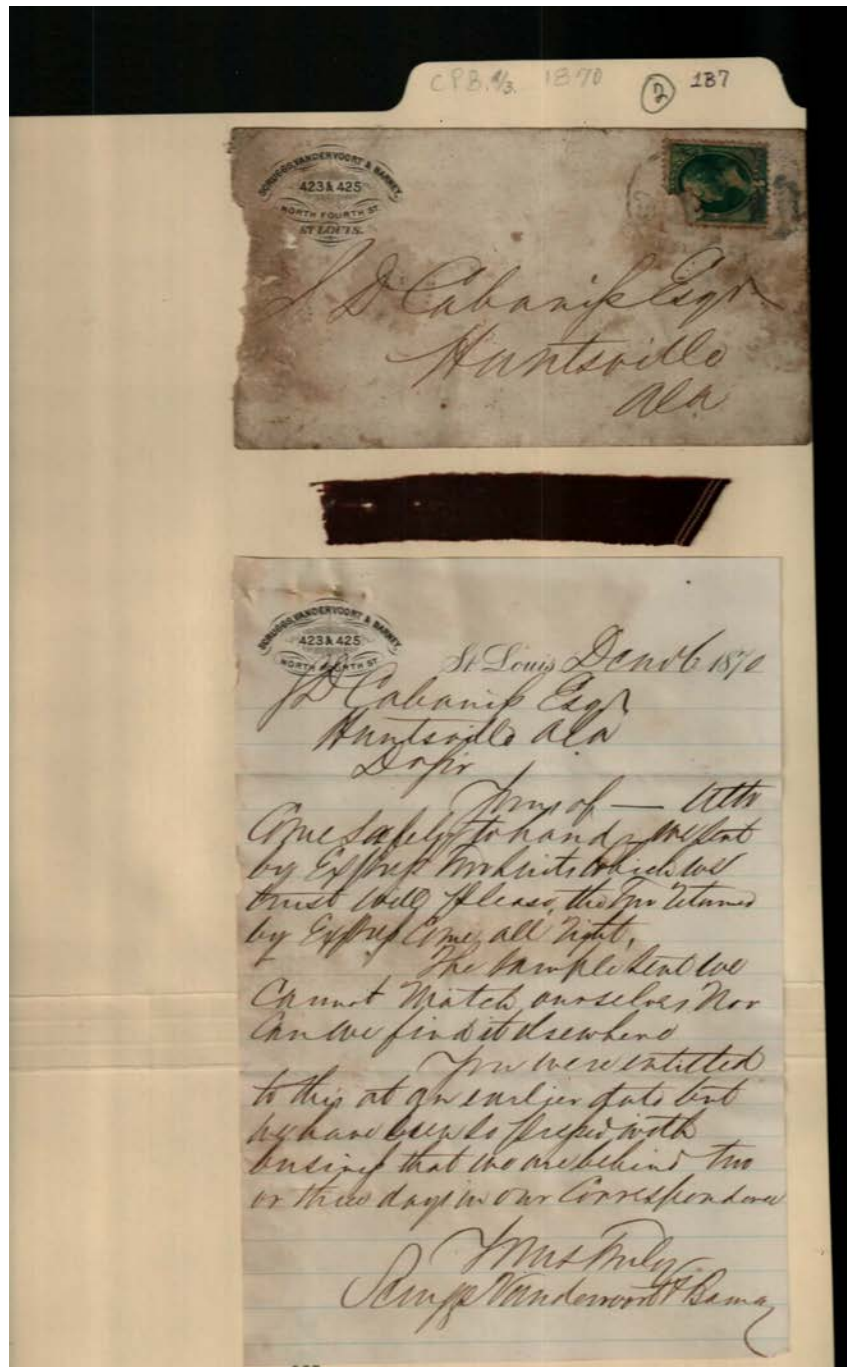 CPB. 4/3. 1870 2 187
SCRUGGS, VANDERVOORT & BARNEY,
423 & 425
NORTH FOURTH ST
ST LOUIS.
S D Cabaniss Esqr
Huntsville
Ala
SCRUGGS, VANDERVOORT & BARNEY,
423 & 425
NORTH FOURTH ST
St Louis 1870
S D Cabaniss Esqr
Huntsville Ala
D Sir
Yours of —
Come safely to hand we sent
by Express which we
trust will please, the returned
by Express Come all right,
The sample sent we
Cannot Match ourselves Nor
Can we find it elsewhere
You were entitled
to this at an earlier date but
we have been so pressed with
business that we are behind two
or three days in our Correspondence
Yours Truly
Scruggs Vandervoort & Barney